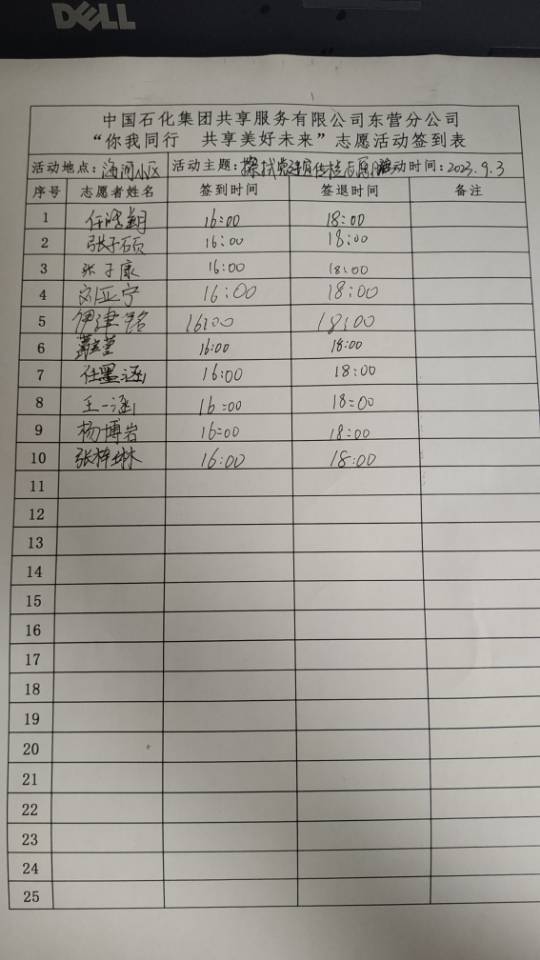 DELL
中国石化集团共享服务有限公司东营分公司
“你我同行 共享美好未来”志愿活动签到表
活动地点：海河小区 活动主题：擦拭 活动时间：2023.9.3
序号 志愿者姓名 签到时间 签退时间 备注
1 任浩翔 16:00 18:00
2 张子硕 16:00 18:00
3 张子康 16:00 18:00
4 刘亚宁 16:00 18:00
5 伊建铭 16:00 18:00
6 16:00 18:00
7 任墨涵 16:00 18:00
8 王一涵 16:00 18:00
9 杨博岩 16:00 18:00
10 张梓琳 16:00 18:00
11
12
13
14
15
16
17
18
19
20
21
22
23
24
25